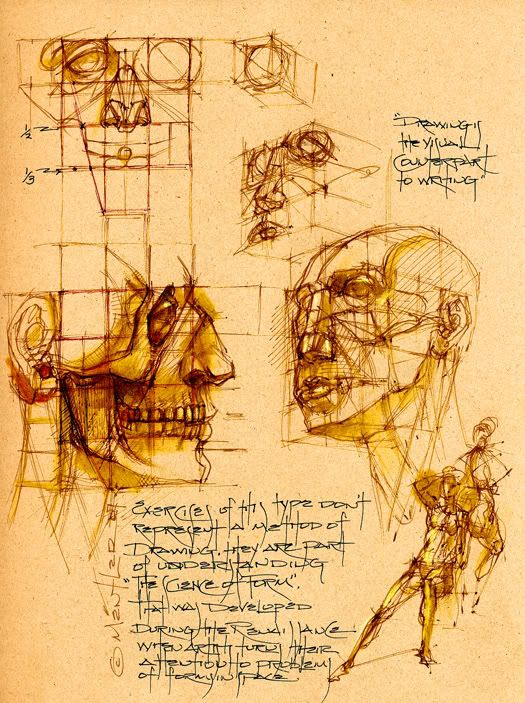 "Drawing is
the visual
counterpart
to writing"
1/2
1/3
Exercises of this type don't
represent a method of
drawing. They are part
of understanding
"the science of form".
that was developed
during the Renaissance
when artist turn their
attention to problems
of forms in space.
© Mentler